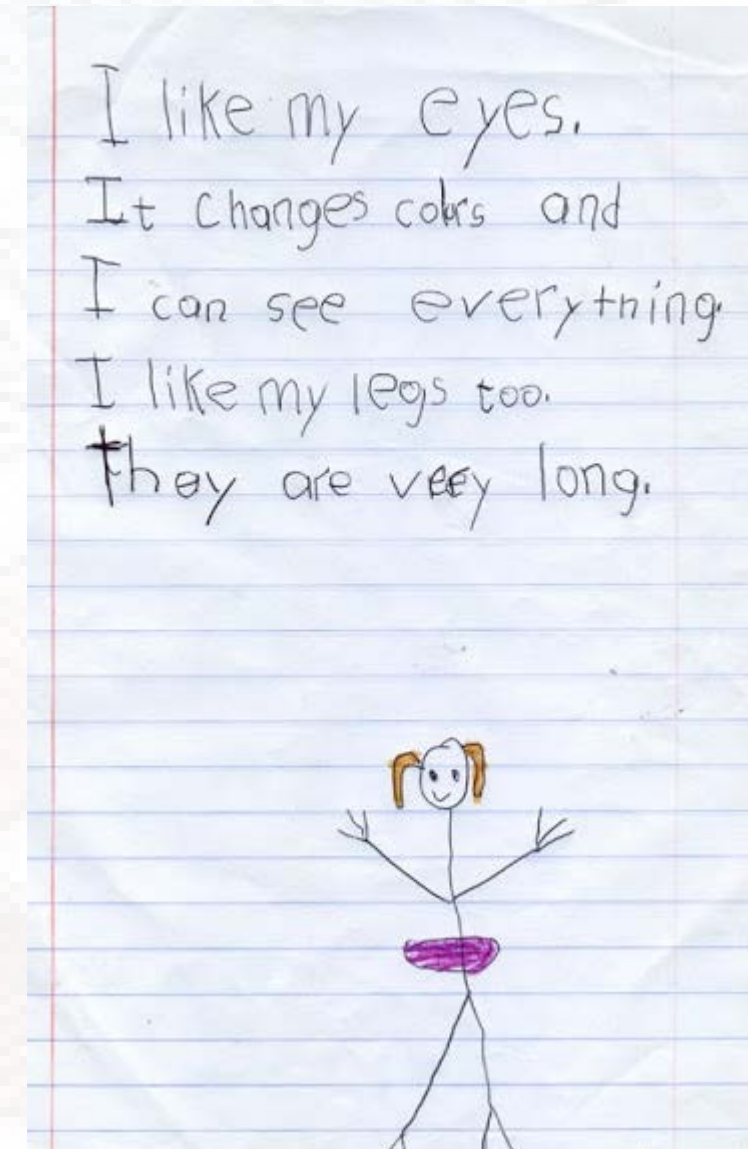 I like my eyes.
It changes colors and
I can see everything.
I like my legs too.
they are very long.